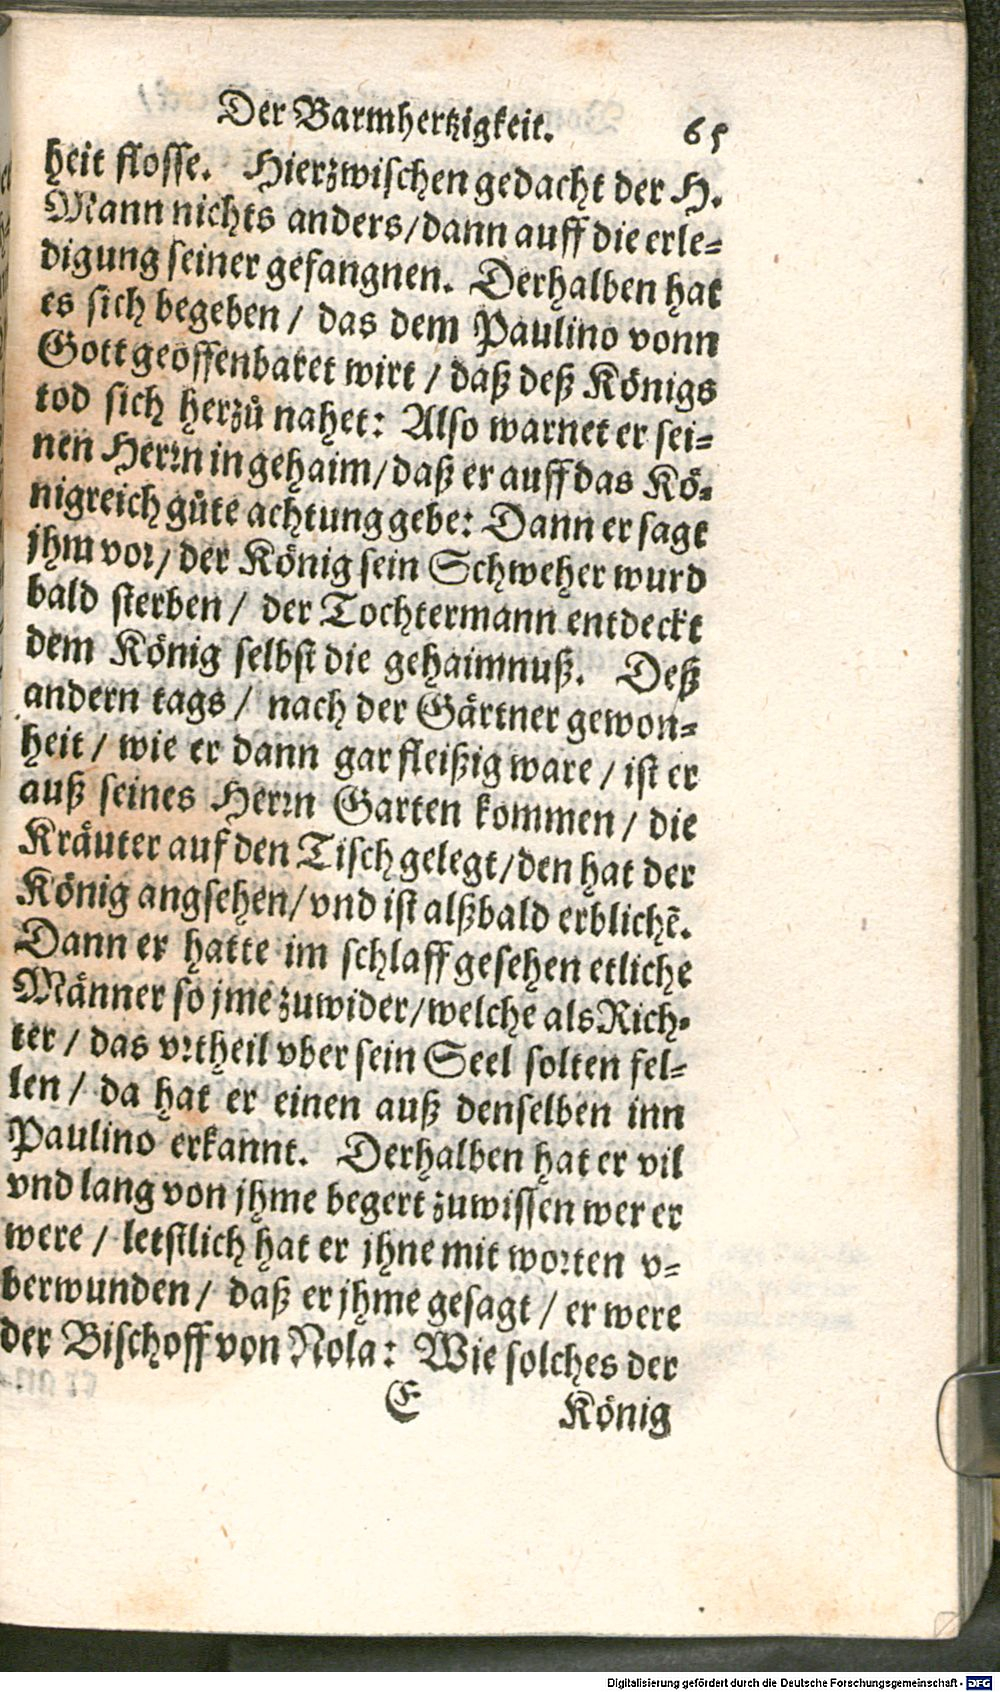 Der Barmhertzigkeit. 65
heit flosse. Hierzwischen gedacht der H.
Mann nichts anders/dann auff die erle=
digung seiner gefangnen. Derhalben hat
es sich begeben / das dem Paulino vonn
Gott geoffenbaret wirt / daß deß Königs
tod sich herzů nahet: Also warnet er sei=
nen Herrn in gehaim/daß er auff das Kö=
nigreich gůte achtung gebe: Dann er sagt
jhm vor/ der König sein Schweher wurd
bald sterben / der Tochtermann entdeckt
dem König selbst die gehaimnuß. Deß
andern tags / nach der Gärtner gewon=
heit / wie er dann gar fleißig ware / ist er
auß seines Herrn Garten kommen / die
Kräuter auf den Tisch gelegt/den hat der
König angsehen/vnd ist alßbald erblichẽ.
Dann er hatte im schlaff gesehen etliche
Männer so jme zuwider/welche als Rich=
ter / das vrtheil vber sein Seel solten fel=
len / da hat er einen auß denselben inn
Paulino erkannt. Derhalben hat er vil
vnd lang von jhme begert zuwissen wer er
were / letstlich hat er jhne mit worten v=
berwunden / daß er jhme gesagt / er were
der Bischoff von Nola: Wie solches der
E König
Digitalisierung gefördert durch die Deutsche Forschungsgemeinschaft - DFG